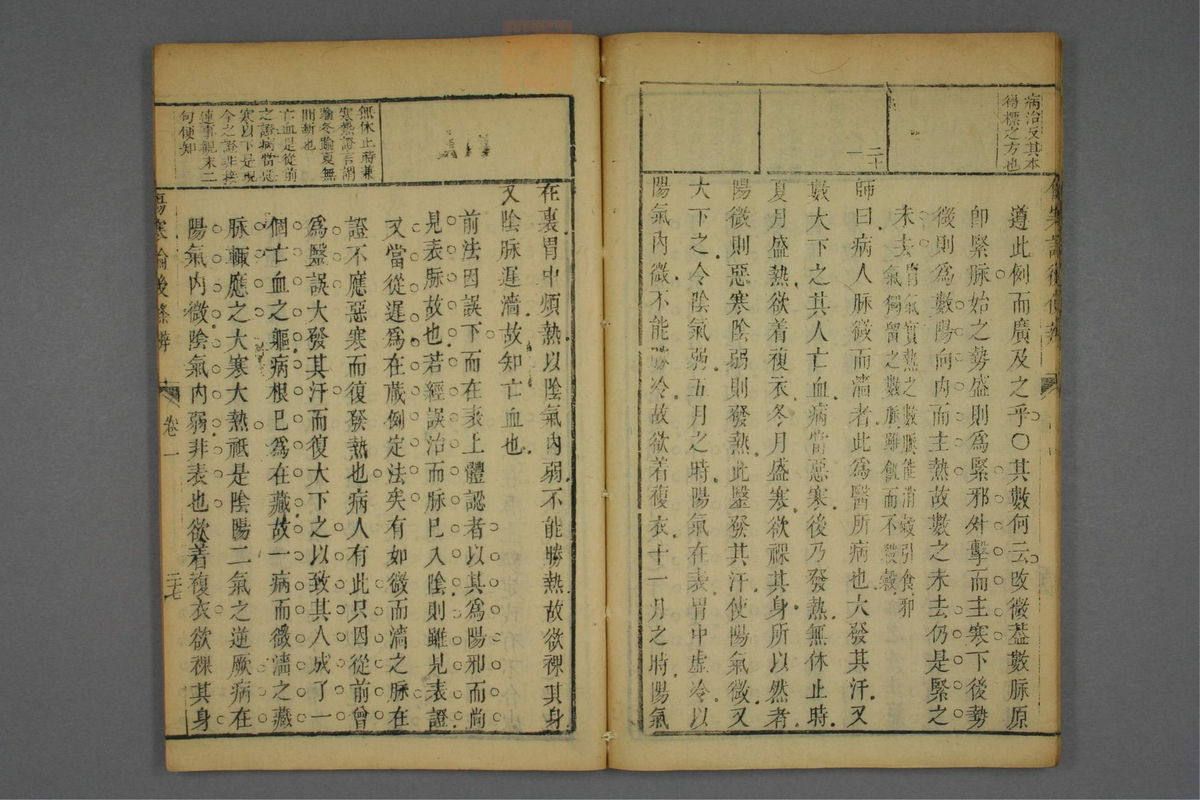 病治反其本
得標之方也
二十
一
遵此例而廣及之乎〇其數何云改微蓋數脉原
卽緊脉始之勢盛則爲緊邪外擊而主寒下後勢
微則爲數陽向內而主熱故數之未去仍是緊之
未去胃氣實熱之數脉能消穀引食邪
氣獨留之數脉雖數而不殺穀
師曰病人脉微而濇者此爲醫所病也大發其汗又
數大下之其人亡血病當惡寒後乃發熱無休止時
夏月盛熱欲着複衣冬月盛寒欲裸其身所以然者
陽微則惡寒陰弱則發熱此醫發其汗使陽氣微又
大下之令陰氣弱五月之時陽氣在表胃中虛冷以
陽氣內微不能勝冷故欲着複衣十一月之時陽氣
無休止時兼
寒熱證言謂
踰冬踰夏無
間斷也
亡血是從前
之證病當惡
寒以下是現
今之證非接
連事觀末二
句便知
在裏胃中煩熱以陰氣內弱不能勝熱故欲裸其身
又陰脉遲濇故知亡血也
前法因誤下而在表上體認者以其爲陽邪而尚
見表脉故也若經誤治而脉已入陰則雖見表證
又當從遲爲在藏例定法矣有如微而濇之脉在
證不應惡寒而復發熱也病人有此只因從前曾
爲醫誤大發其汗而復大下之以致其人成了一
個亡血之軀病根已爲在藏故一病而微濇之藏
脉輒應之大寒大熱祇是陰陽二氣之逆厥病在
陽氣內微陰氣內弱非表也欲着複衣欲裸其身
傷寒論後條辨
卷一
二七